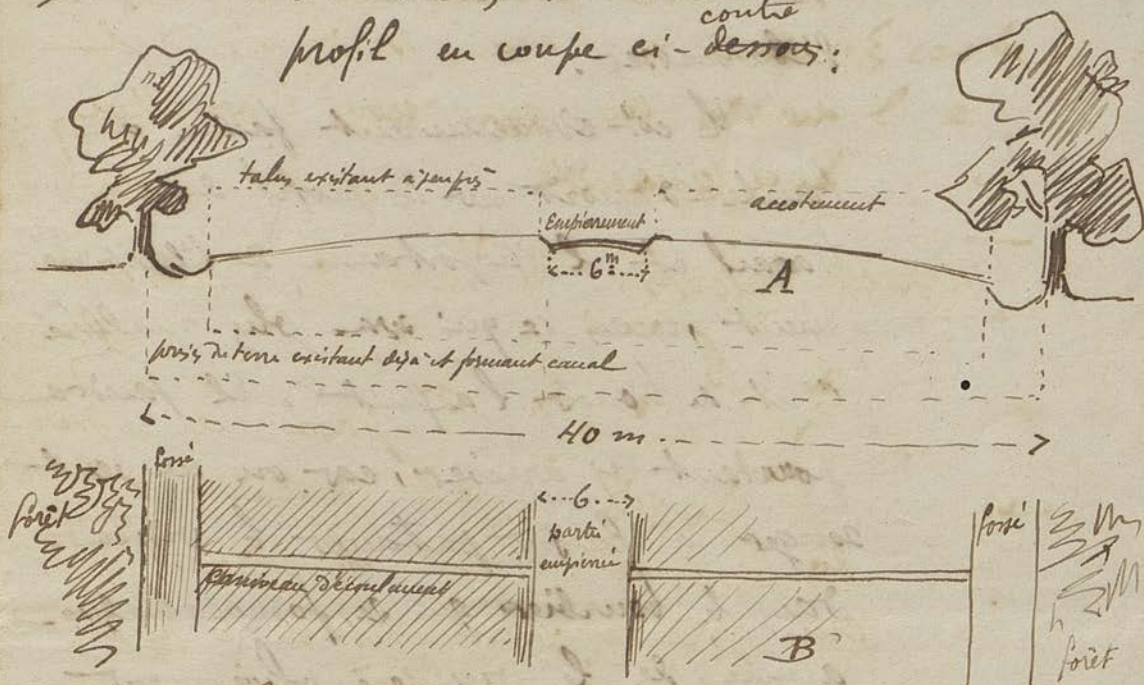 contre
profil en coupe ci-dessous:
talus existant à peu près
Empierrement
accotement
6m
A
prises de terre existant déjà et formant canal
40 m.
fossé
6
forêt
partie
empierrée
fossé
Caniveau d'écoulement
B
forêt